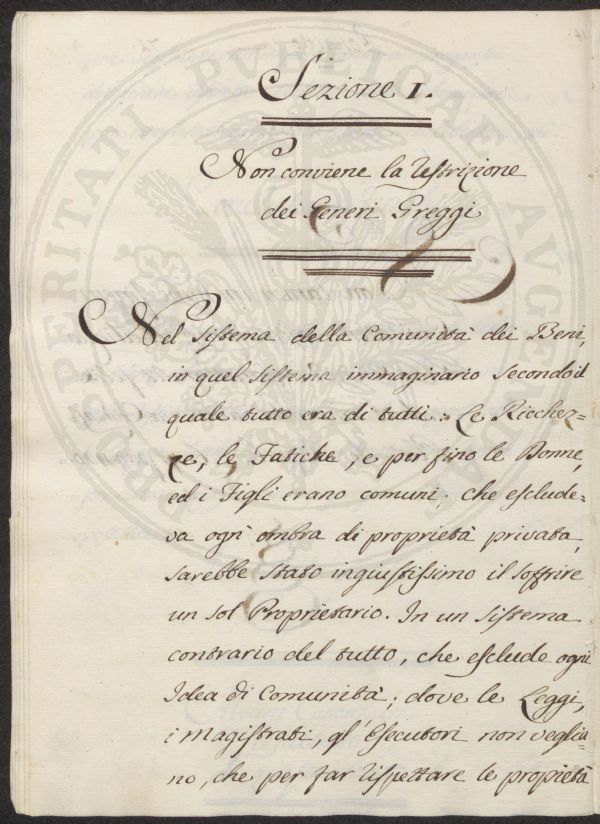 Sezione I.
Non conviene la restrizione
dei Generi Greggi
Nel sistema della Comunità dei Beni,
in quel sistema immaginario secondo il
quale tutto era di tutti: Le Ricchez=
ze, le Fatiche, e per fino le Donne,
ed i Figli erano comuni; che esclude=
va ogni ombra di proprietà privata,
sarebbe stato ingiustissimo il soffrire
un sol Proprietario. In un sistema
contrario del tutto, che esclude ogni
Idea di Comunità; dove le Leggi,
i Magistrati, gl'Esecutori non veglia=
no, che per far rispettare le proprietà
PROSPERITATI PUBLICAE AUGENDAE